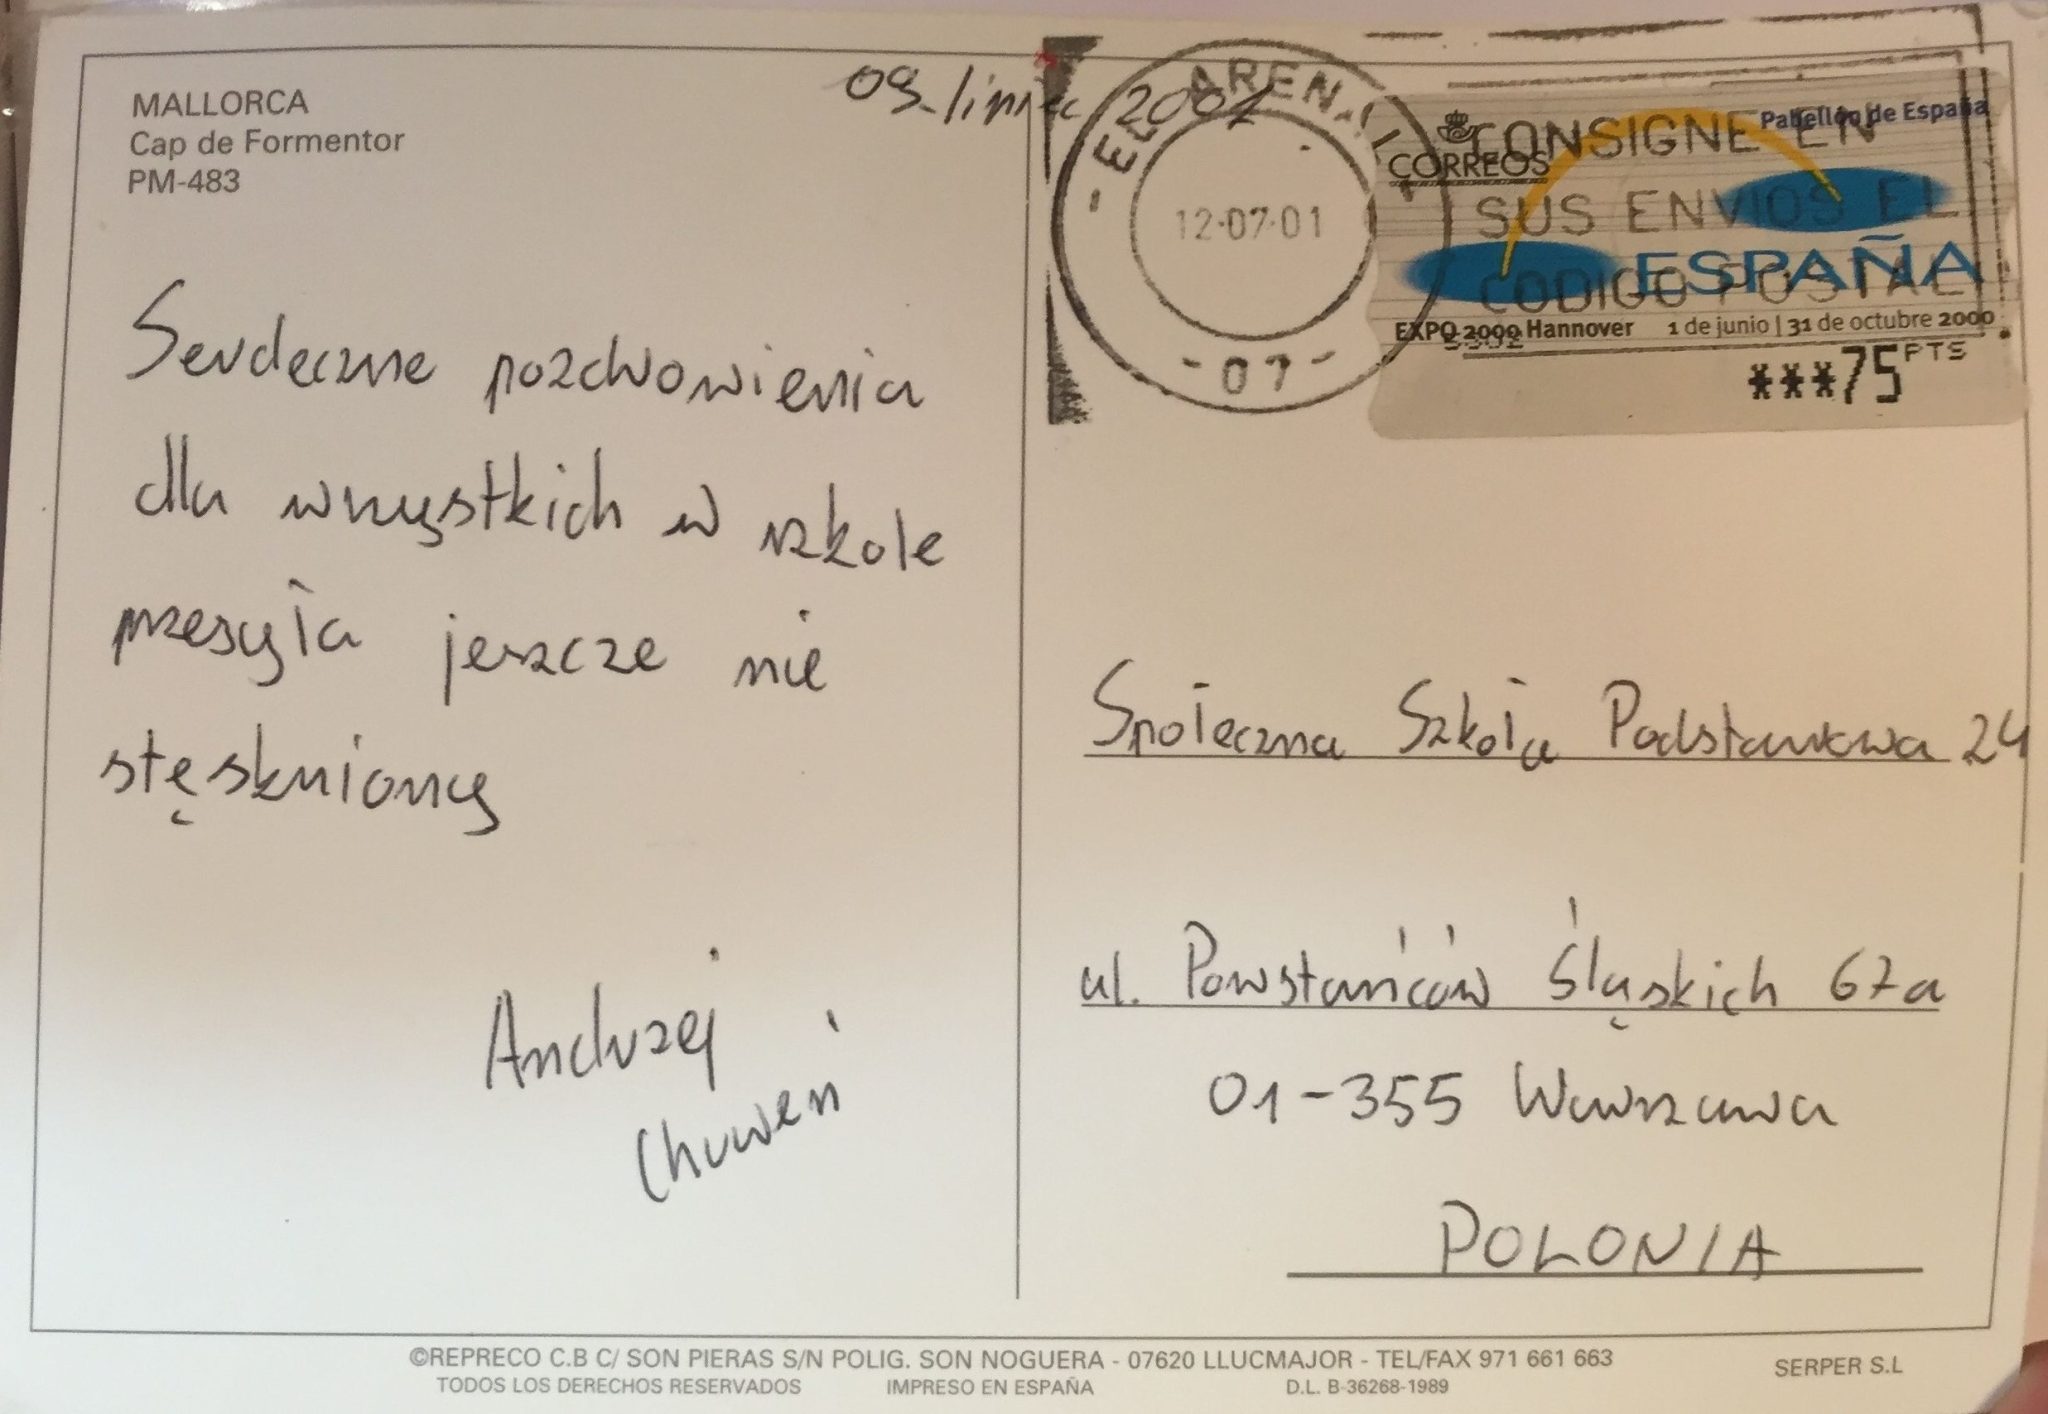 MALLORCA
Cap de Formentor
PM-483
09 lipiec 2001
Serdeczne pozdrowienia
dla wszystkich w szkole
przesyła jeszcze nie
stęskniony
Andrzej
EL ARENAL
12-07-01
- 07 -
CONSIGNE EN
SUS ENVIOS EL
CODIGO POSTAL
CORREOS
Pabellón de España
ESPAÑA
EXPO 2000 Hannover 1 de junio | 31 de octubre 2000
***75 PTS
Społeczna Szkoła Podstawowa 24
ul. Powstańców Śląskich 67a
01-355 Warszawa
POLONIA
©REPRECO C.B C/ SON PIERAS S/N POLIG. SON NOGUERA - 07620 LLUCMAJOR - TEL/FAX 971 661 663
TODOS LOS DERECHOS RESERVADOS IMPRESO EN ESPAÑA D.L. B-36268-1989
SERPER S.L